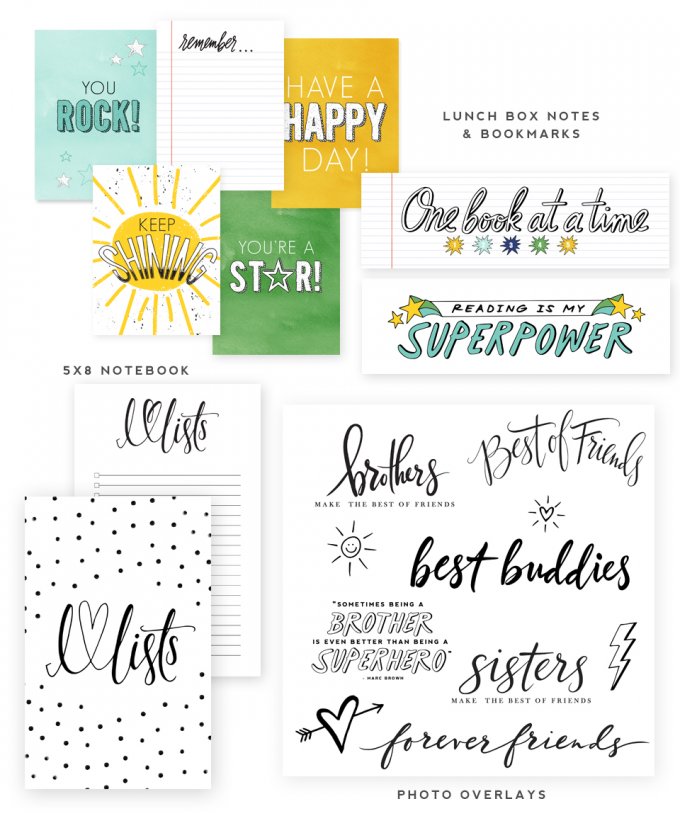 YOU
ROCK!
remember...
HAVE A
HAPPY
DAY!
LUNCH BOX NOTES
& BOOKMARKS
KEEP
SHINING
YOU'RE A
STAR!
One book at a time
1 2 3 4 5
READING IS MY
SUPERPOWER
5X8 NOTEBOOK
I lists
I lists
brothers
MAKE THE BEST OF FRIENDS
Best of Friends
best buddies
"SOMETIMES BEING A
BROTHER
IS EVEN BETTER THAN BEING A
SUPERHERO"
- MARC BROWN
sisters
MAKE THE BEST OF FRIENDS
forever friends
PHOTO OVERLAYS